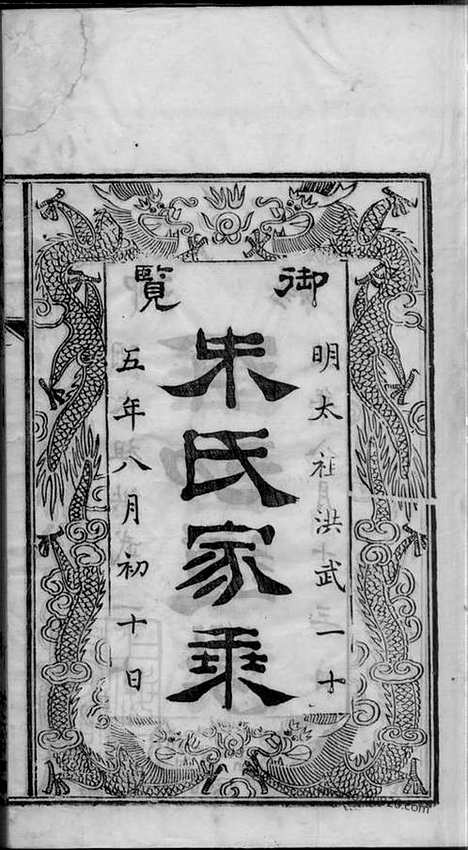 御覽
明太祖洪武一十
朱氏家乘
五年八月初十日